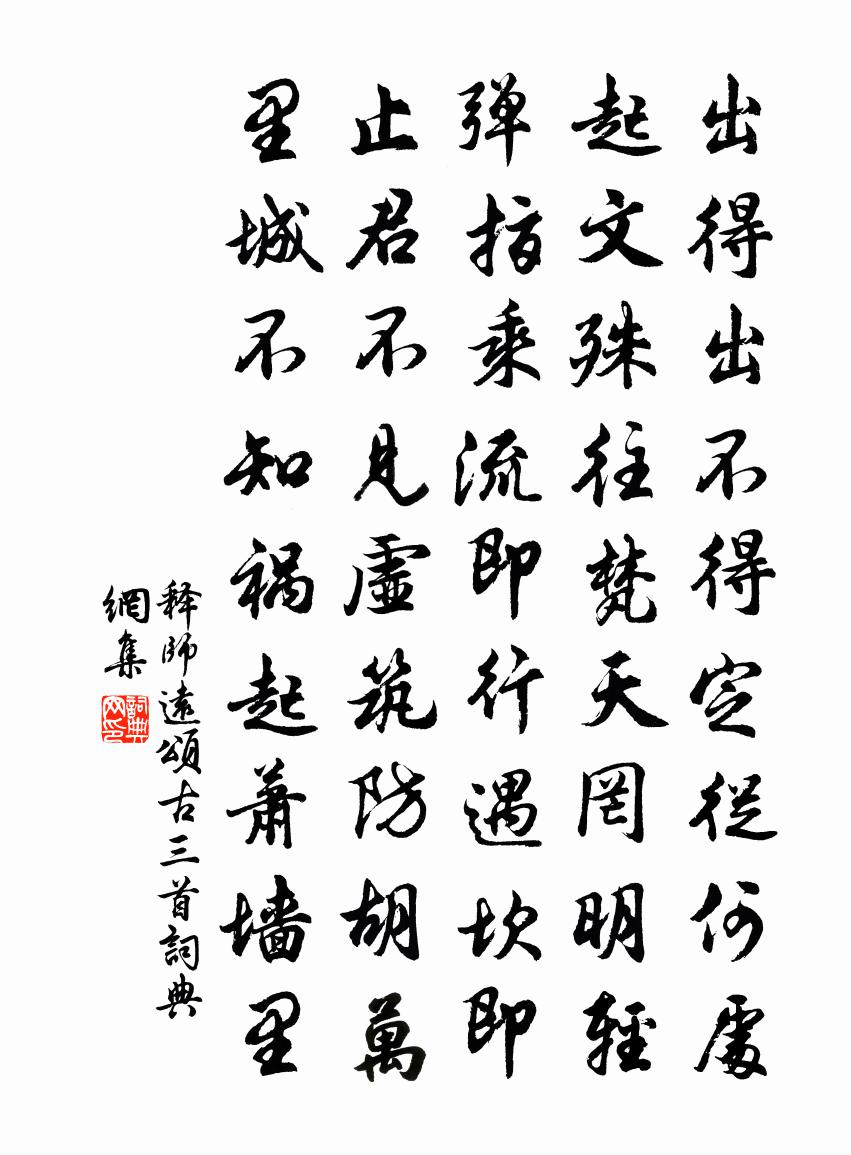 出得出不得定從何處
起文殊往梵天罔明輕
弹指乘流即行遇坎即
止君不見虛筑防胡萬
里城不知祸起蕭墙里
释師遠頌古三首詞典
網集
詞典網印